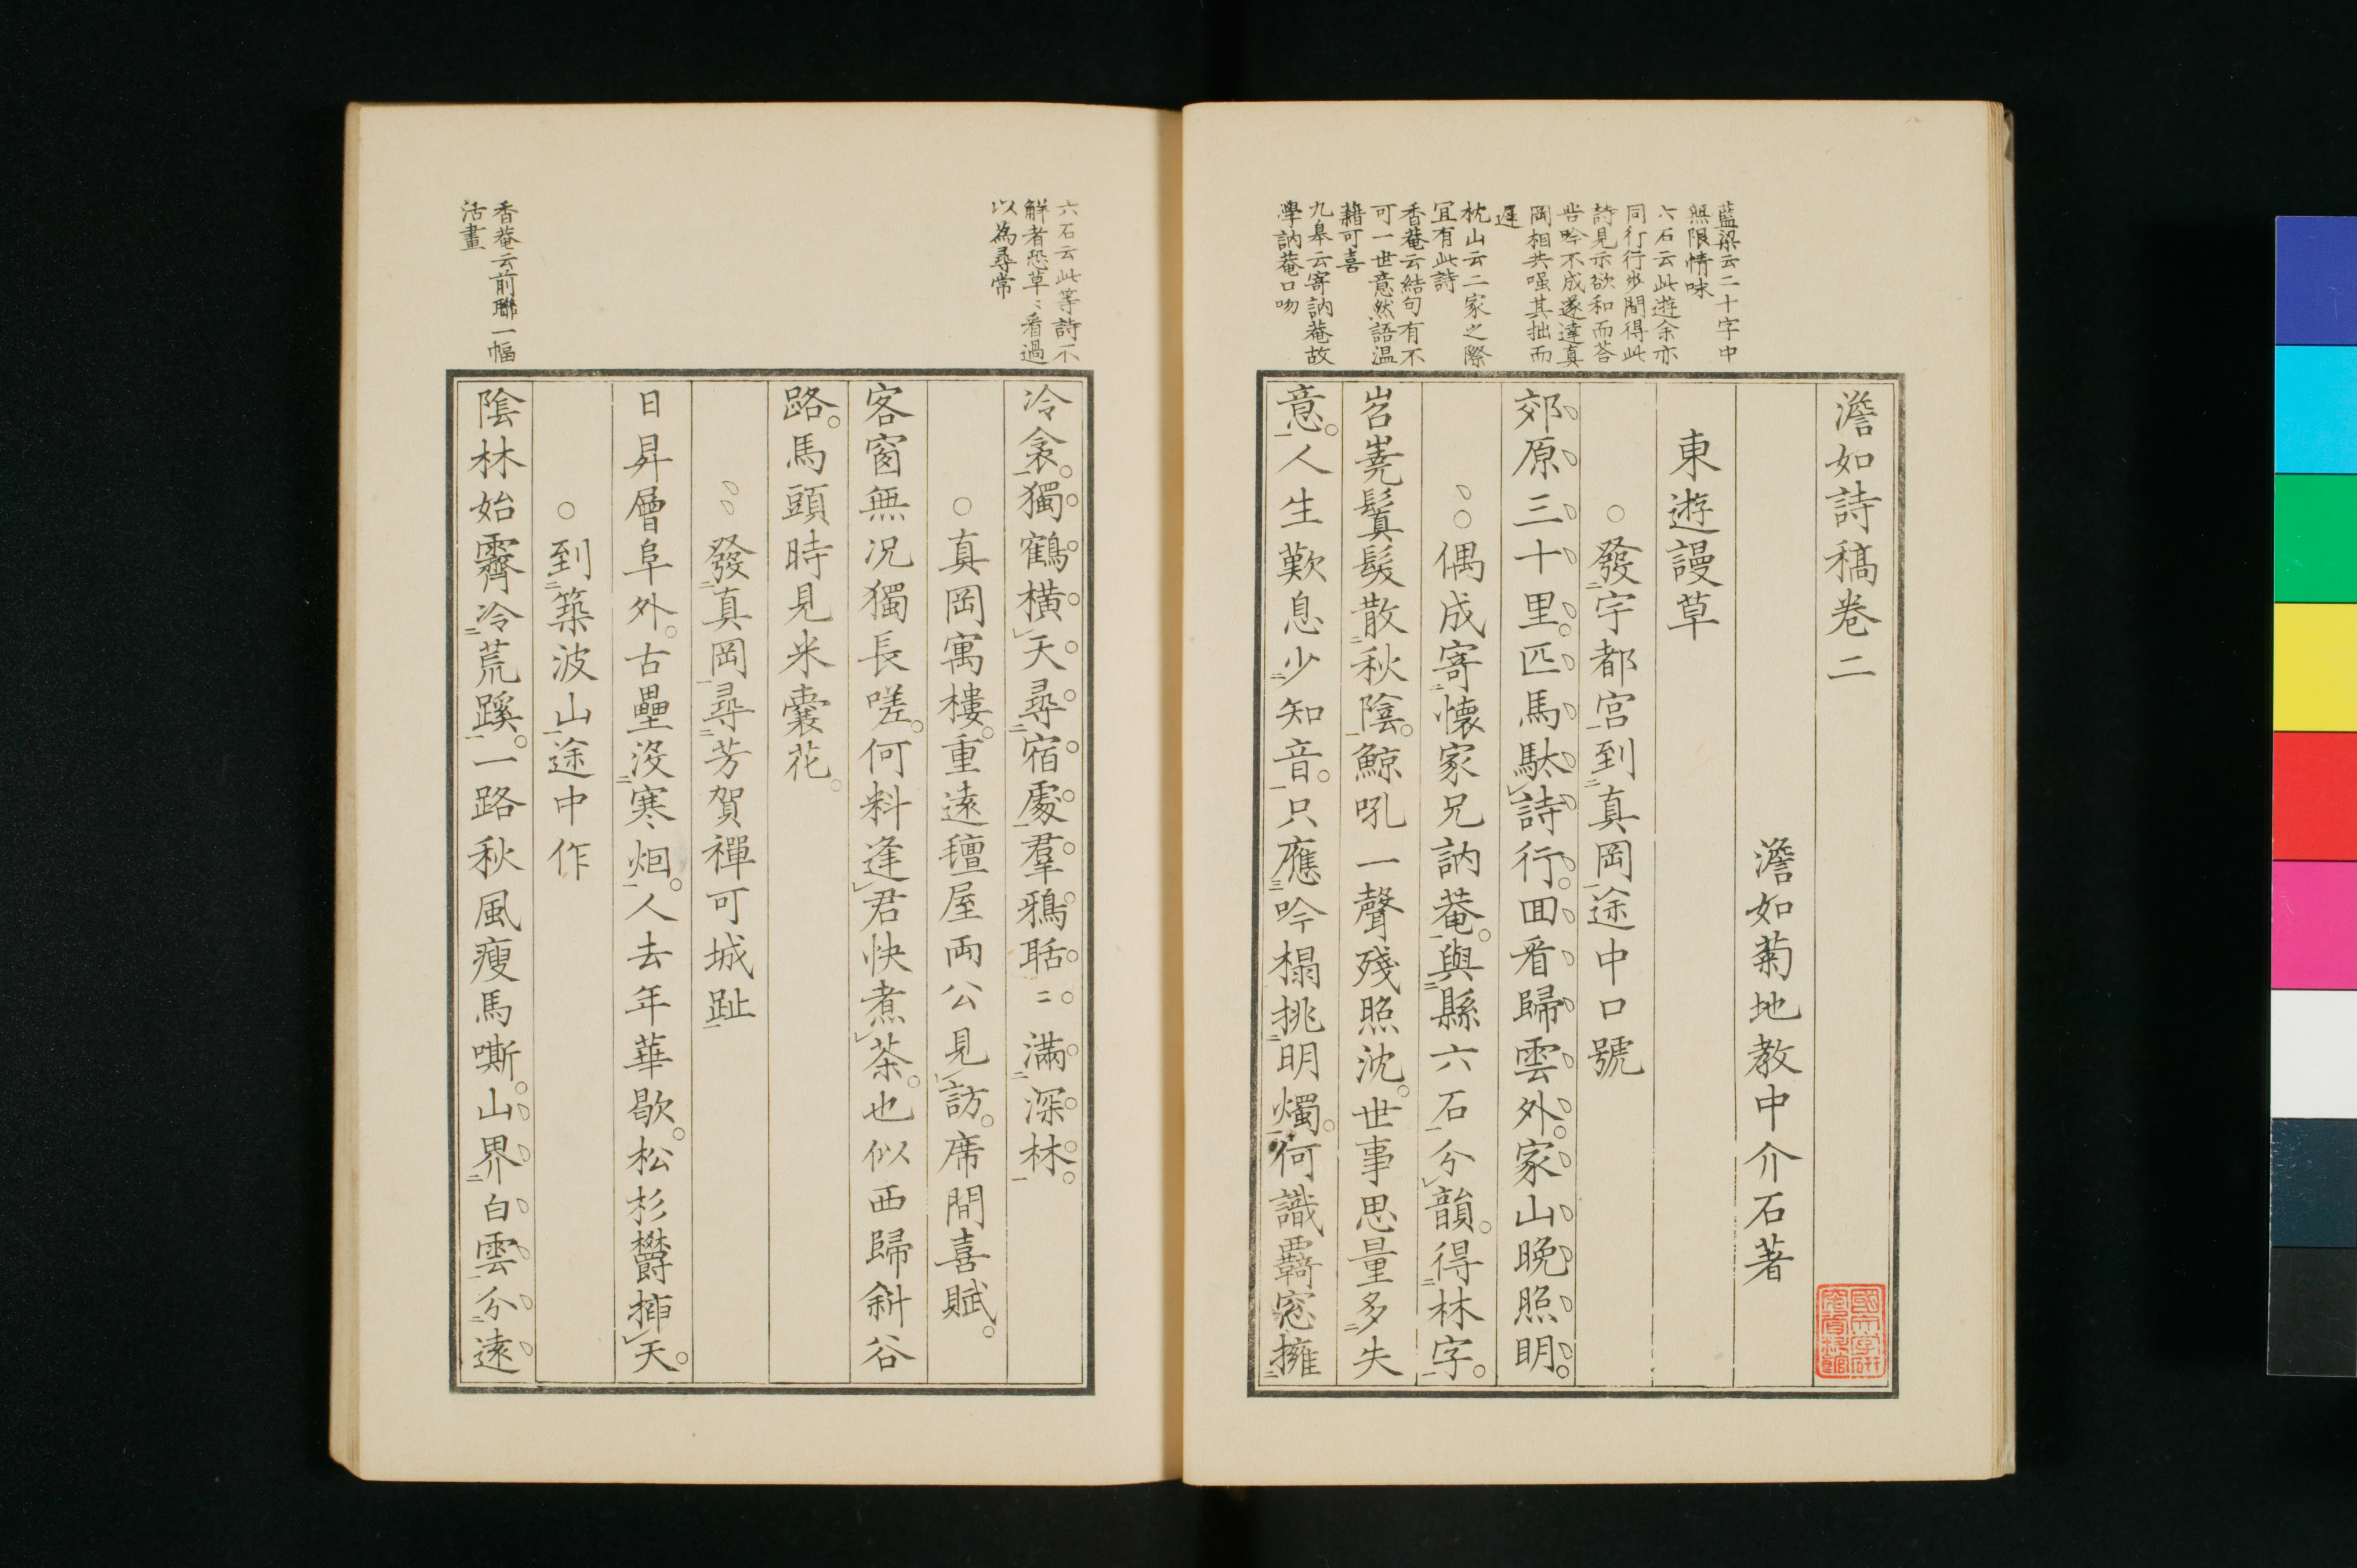 澹如詩稿卷二
澹如菊地教中介石著
東遊謾草
發宇都宮到真岡途中口號
郊原三十里匹馬馱詩行回看歸雲外家山晩照明
偶成寄懷家兄訥菴與縣六石分韻得林字
岧嶤鬒髮散秋陰鯨吼一聲殘照沈世事思量多失
意人生歎息少知音只應吟榻挑明燭何識覊窓擁
藍梁云二十字中
無限情味
六石云此遊余亦
同行行步間得此
詩見示欲和而荅
呰吟不成遂達真
岡相共嗤其拙而
遅
枕山云二家之際
宜有此詩
香菴云結句有不
可一世意然語温
藉可喜
九皋云寄訥菴故
學訥菴口吻
冷衾獨鶴横天尋宿處羣鴉聒〻滿深林
真岡寓樓重遠穜屋両公見訪席間喜賦
客窗無况獨長嗟何料逢君快煮茶也似西歸斜谷
路馬頭時見米囊花
發真岡尋芳賀禪可城趾
日昇層阜外古壘没寒烟人去年華歇松杉欝挿天
到築波山途中作
陰林始霽冷荒蹊一路秋風瘦馬嘶山界白雲分遠
六石云此等詩不
觧者恐草〻看過
以為尋常
香菴云前聯一幅
活畫